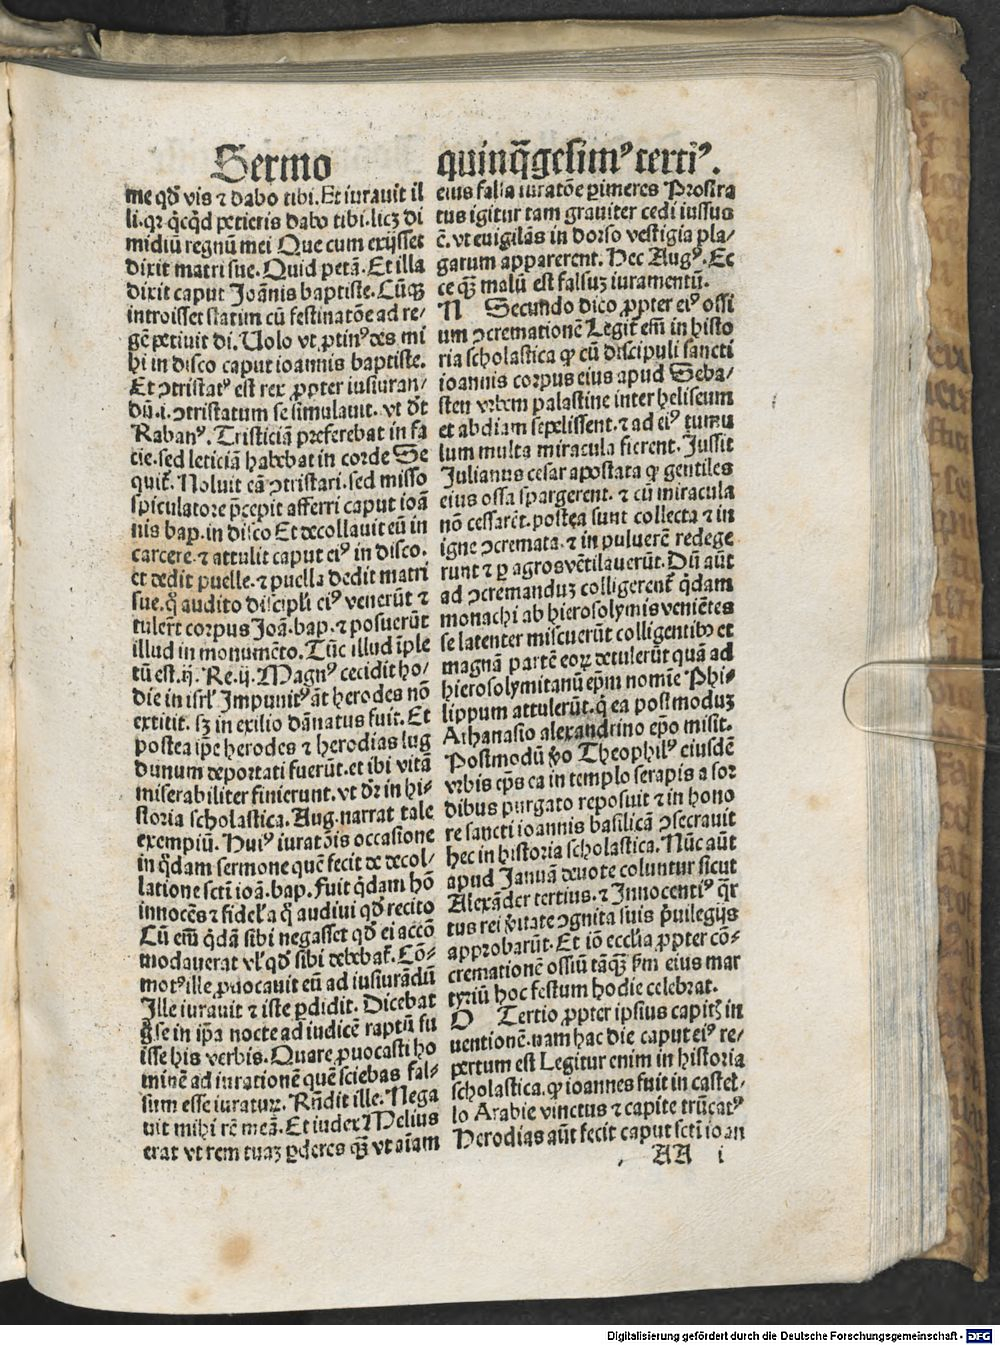 Sermo quinq̃gesimꝰ tertiꝰ.
me qd̃ vis ⁊ dabo tibi. Et iuravit il
li. qꝛ q̃cq̃d petieris dabo tibi. licꝫ di
midiũ regnũ mei Que cum exijsset
dixit matri sue. Quid petã. Et illa
dixit caput Joãnis baptiste. Cũqꝫ
introisset statim cũ festinatõe ad re/
gẽ petiuit di. Uolo vt ꝓtinꝰ des mi
hi in disco caput ioannis baptiste.
Et ↄtristatꝰ est rex ꝓpter iusiuran/
dũ .i. ↄtristatum se simulauit. vt dr̃t
Rabanꝰ. Tristiciã preferebat in fa
cie. sed leticiã habebat in corde Se
quit̃. Noluit eã ↄtristari. sed misso
spiculatore p̃cepit afferri caput ioã
nis bap. in disco Et decollauit eũ in
carcere. ⁊ attulit caput eiꝰ in disco.
et dedit puelle. ⁊ puella dedit matri
sue. q̊ audito discipli eiꝰ venerũt ⁊
tulert̃ corpus Joã. bap. ⁊ posuerũt
illud in monumẽto. Tũc illud ĩple
tũ est .ij. Re. ij. Magnꝰ cecidit ho/
die in isrl̃ Impunitꝰ ãt herodes nõ
extitit. sꝫ in exilio dãnatus fuit. Et
postea ip̃e herodes ⁊ herodias lug
dunum deportati fuerũt. et ibi vitã
miserabiliter finierunt. vt dr̃ in hi-
storia scholastica. Aug. narrat tale
exempiũ. Huiꝰ iuratõis occasione
in q̃dam sermone quẽ fecit de decol/
latione scti ioã. bap. Fuit q̃dam hõ
innocẽs ⁊ fidel̃ a q̊ audiui qd̃ recito
Cũ eĩ q̃dã sibi negasset qd̃ ei accõ
modauerat vl̃ qd̃ sibi debebat̃. Cõ-
motꝰ ille ꝓuocauit eũ ad iusiurãdũ
Ille iurauit ⁊ iste ꝑdidit. Dicebat
g̊ se in ip̃a nocte ad iudicẽ raptũ fu
isse his verbis. Quare ꝓuocasti ho
minẽ ad iurationẽ quẽ sciebas fal-
sum esse iuraturꝫ. Rñdit ille. Nega
uit mihi rẽ meã. Et iudex Melius
erat vt rem tuaꝫ ꝑderes qꝫ̃ vt aĩam
eius falsa iuratõe ꝑimeres Prostra
tus igitur tam grauiter cedi iussus
ẽ. vt euigilãs in dorso vestigia pla/
garum apparerent. Hec Augꝰ. Ec
ce qꝫ̃ malũ est falsuꝫ iuramentũ.
N Secundo dico ꝓpter eiꝰ ossi
um ↄcremationẽ Legit̃ eĩ in histo
ria scholastica ꝙ cũ discipuli sancti
ioannis corpus eius apud Seba/
sten vrbem palastine inter heliseum
et abdiam sepelissent. ⁊ ad eiꝰ tumu
lum multa miracula fierent. Jussit
Julianus cesar apostata ꝙ gentiles
eius ossa spargerent. ⁊ cũ miracula
nõ cessarẽt. postea sunt collecta ⁊ in
igne ↄcremata. ⁊ in puluerẽ redege
runt ⁊ ꝑ agros vẽtilauerũt. Dũ aũt
ad ↄcremanduꝫ colligerent̃ q̃dam
monachi ab hierosolymis veniẽtes
se latenter miscuerũt colligentibꝰ et
magnã partẽ eoꝝ detulerũt quã ad
hierosolymitanũ ep̃m nomĩe Phi-
lippum attulerũt. q̊ ea postmoduꝫ
Athanasio alexandrino ep̃o misit.
Postmodũ v̊o Theophilꝰ eiusdẽ
vrbis ep̃s ea in templo serapis a sor
dibus purgato reposuit ⁊ in hono
re sancti ioannis basilicã ↄsecrauit
hec in historia scholastica. Nũc aũt
apud Januã deuote coluntur sicut
Alexãder tertius. ⁊ Innocentiꝰ q̃r
tus rei v̊itate ↄgnita suis p̃uilegijs
approbarũt. Et iõ eccl̃ia ꝓpter cõ-
cremationẽ ossiũ tãqꝫ̃ ẜm eius mar
tyriũ hoc festum hodie celebrat.
O Tertio ꝓpter ipsius capitꝭ in
uentionẽ. nam hac die caput eiꝰ re/
pertum est Legitur enim in historia
scholastica. ꝙ ioannes fuit in castel-
lo Arabie vinctus ⁊ capite trũcatꝰ
Herodias aũt fecit caput scti ioan
AA i
Digitalisierung gefördert durch die Deutsche Forschungsgemeinschaft - DFG